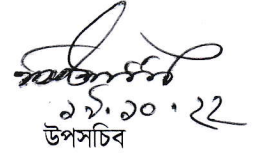 ১৯.১০.২২
উপসচিব